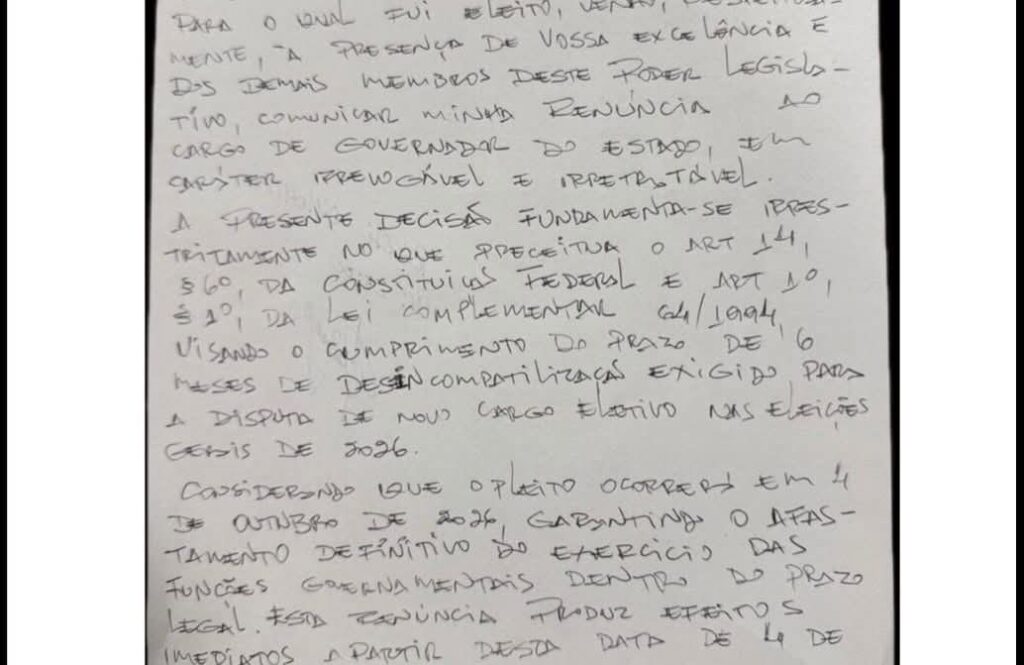 PARA O QUAL FUI ELEITO, VENHO, RESPEITOSA-
MENTE, À PRESENÇA DE VOSSA EXCELÊNCIA E
DOS DEMAIS MEMBROS DESTE PODER LEGISLA-
TIVO, COMUNICAR MINHA RENÚNCIA AO
CARGO DE GOVERNADOR DO ESTADO, EM
CARÁTER IRREVOGÁVEL E IRRETRATÁVEL.
A PRESENTE DECISÃO FUNDAMENTA-SE IRRES-
TRITAMENTE NO QUE PRECEITUA O ART 14,
§ 6º, DA CONSTITUIÇÃO FEDERAL E ART 1º,
§ 1º, DA LEI COMPLEMENTAR 64/1994,
VISANDO O CUMPRIMENTO DO PRAZO DE 6
MESES DE DESINCOMPATILIZAÇÃO EXIGIDO PARA
A DISPUTA DE NOVO CARGO ELETIVO NAS ELEIÇÕES
GERAIS DE 2026.
CONSIDERANDO QUE O PLEITO OCORRERÁ EM 4
DE OUTUBRO DE 2026, GARANTINDO O AFAS-
TAMENTO DEFINITIVO DO EXERCÍCIO DAS
FUNÇÕES GOVERNAMENTAIS DENTRO DO PRAZO
LEGAL. ESTA RENÚNCIA PRODUZ EFEITOS
IMEDIATOS A PARTIR DESTA DATA DE 4 DE